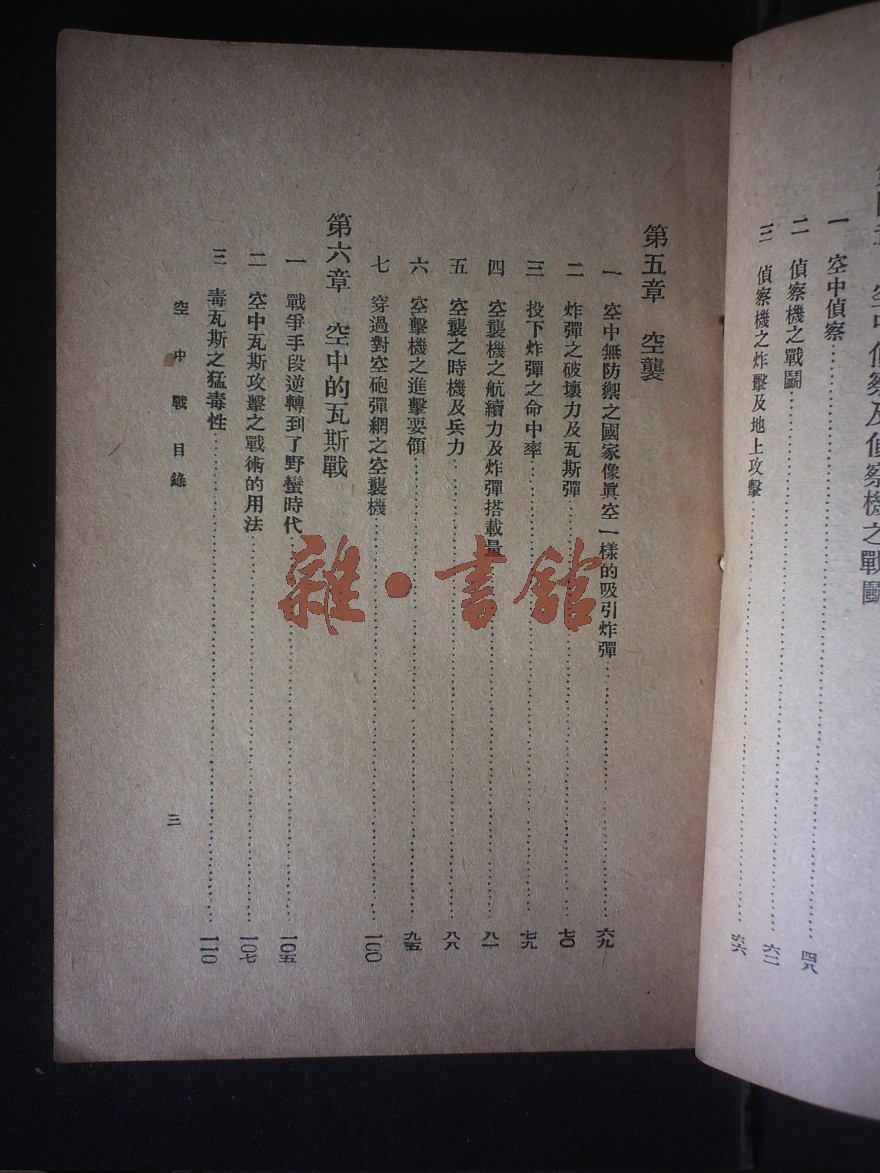 空中偵察及偵察機之戰鬭
一 空中偵察……四八
二 偵察機之戰鬭……六二
三 偵察機之炸擊及地上攻擊……六六
第五章 空襲
一 空中無防禦之國家像眞空一樣的吸引炸彈……六九
二 炸彈之破壞力及瓦斯彈……七〇
三 投下炸彈之命中率……七九
四 空襲機之航續力及炸彈搭載量……八一
五 空襲之時機及兵力……八八
六 空擊機之進擊要領……九五
七 穿過對空砲彈網之空襲機……一〇〇
第六章 空中的瓦斯戰
一 戰爭手段逆轉到了野蠻時代……一〇五
二 空中瓦斯攻擊之戰術的用法……一〇七
三 毒瓦斯之猛毒性……一一〇
空中戰目錄
三
雜·書館